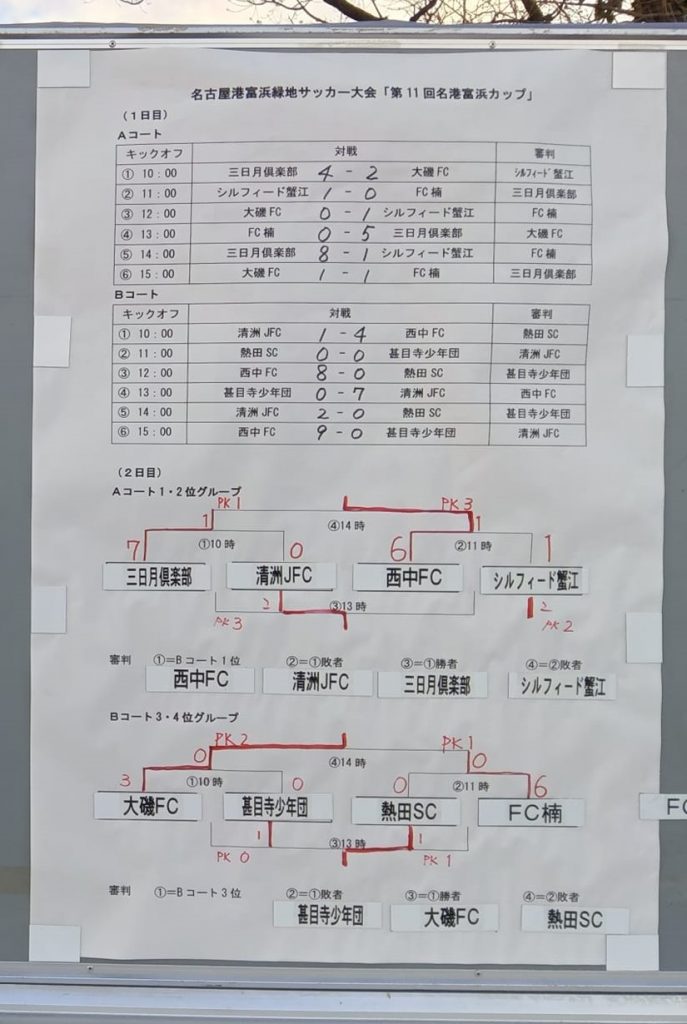 名古屋港富浜緑地サッカー大会「第11回名港富浜カップ」
(1日目)
Aコート
キックオフ 対戦 審判
① 10:00 三日月倶楽部 4 - 2 大磯FC シルフィード蟹江
② 11:00 シルフィード蟹江 1 - 0 FC楠 三日月倶楽部
③ 12:00 大磯FC 0 - 1 シルフィード蟹江 FC楠
④ 13:00 FC楠 0 - 5 三日月倶楽部 大磯FC
⑤ 14:00 三日月倶楽部 8 - 1 シルフィード蟹江 FC楠
⑥ 15:00 大磯FC 1 - 1 FC楠 三日月倶楽部
Bコート
キックオフ 対戦 審判
① 10:00 清洲JFC 1 - 4 西中FC 熱田SC
② 11:00 熱田SC 0 - 0 甚目寺少年団 清洲JFC
③ 12:00 西中FC 8 - 0 熱田SC 甚目寺少年団
④ 13:00 甚目寺少年団 0 - 7 清洲JFC 西中FC
⑤ 14:00 清洲JFC 2 - 0 熱田SC 甚目寺少年団
⑥ 15:00 西中FC 9 - 0 甚目寺少年団 清洲JFC
(2日目)
Aコート1・2位グループ
PK1 PK3
1 ④14時 1
7 ①10時 0 6 ②11時 1
三日月倶楽部 清洲JFC 西中FC シルフィード蟹江
2 ③13時 2
PK3 PK2
審判 ①=Bコート1位 ②=①敗者 ③=①勝者 ④=②敗者
西中FC 清洲JFC 三日月倶楽部 シルフィード蟹江
Bコート3・4位グループ
PK2 PK1
0 ④14時 0
3 ①10時 0 0 ②11時 6
大磯FC 甚目寺少年団 熱田SC FC楠 FC
1 ③13時 1
PK0 PK1
審判 ①=Bコート3位 ②=①敗者 ③=①勝者 ④=②敗者
甚目寺少年団 大磯FC 熱田SC